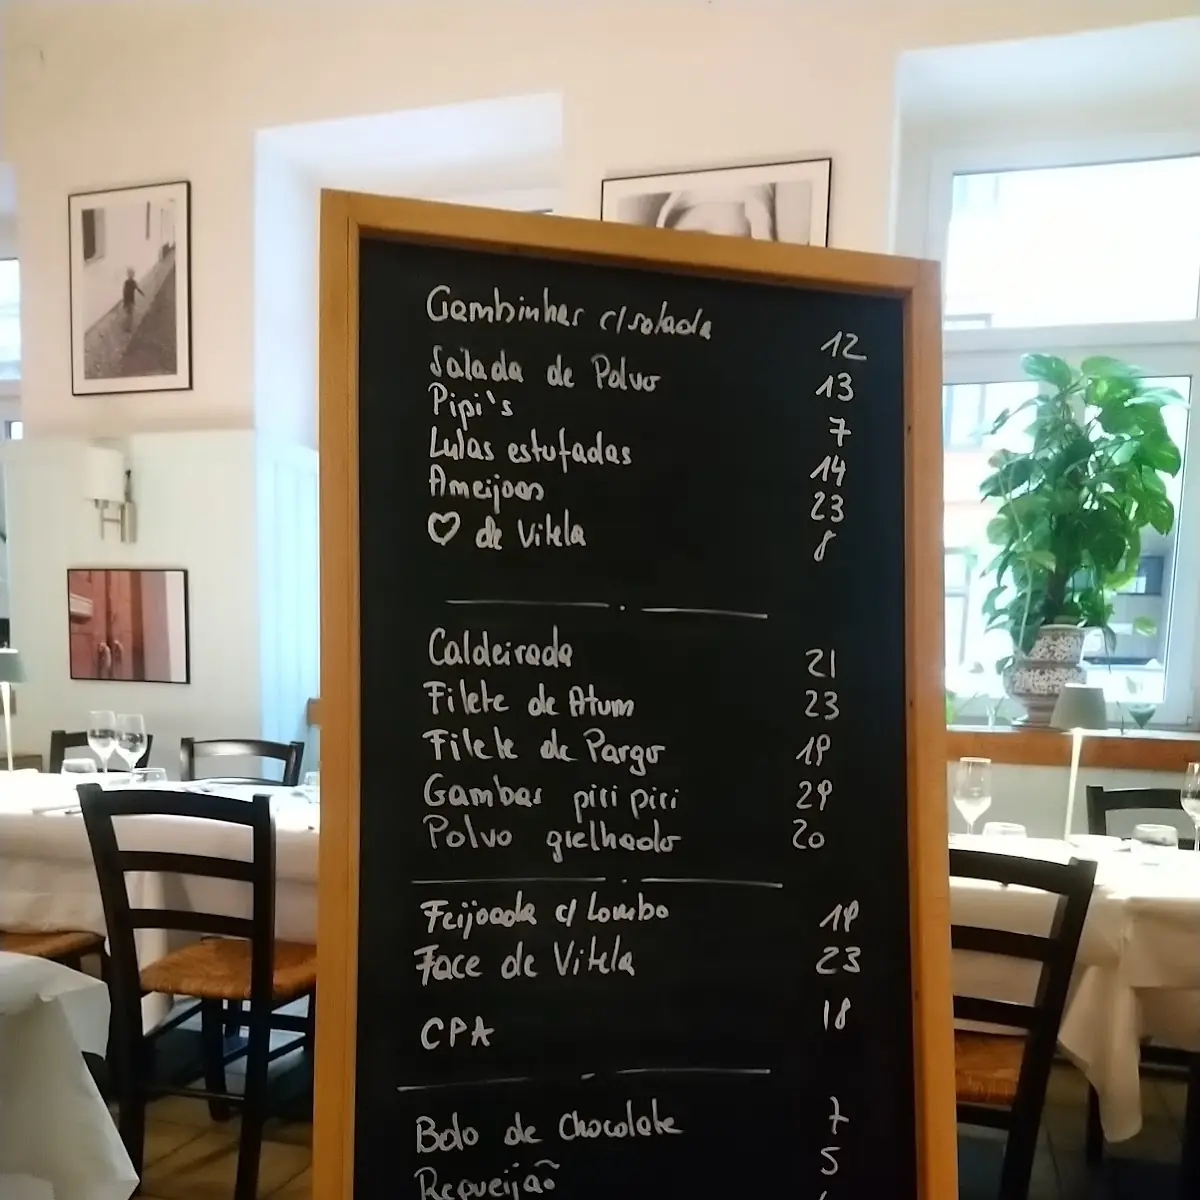 Gambinhas c/salada 12
Salada de Polvo 13
Pipi's 7
Lulas estufadas 14
Ameijoas 23
♡ de Vitela 8
Caldeirada 21
Filete de Atum 23
Filete de Pargo 19
Gambas piri piri 29
Polvo grelhado 20
Feijoada c/ Lombo 19
Face de Vitela 23
CPA 18
Bolo de Chocolate 7
Requeijão 5